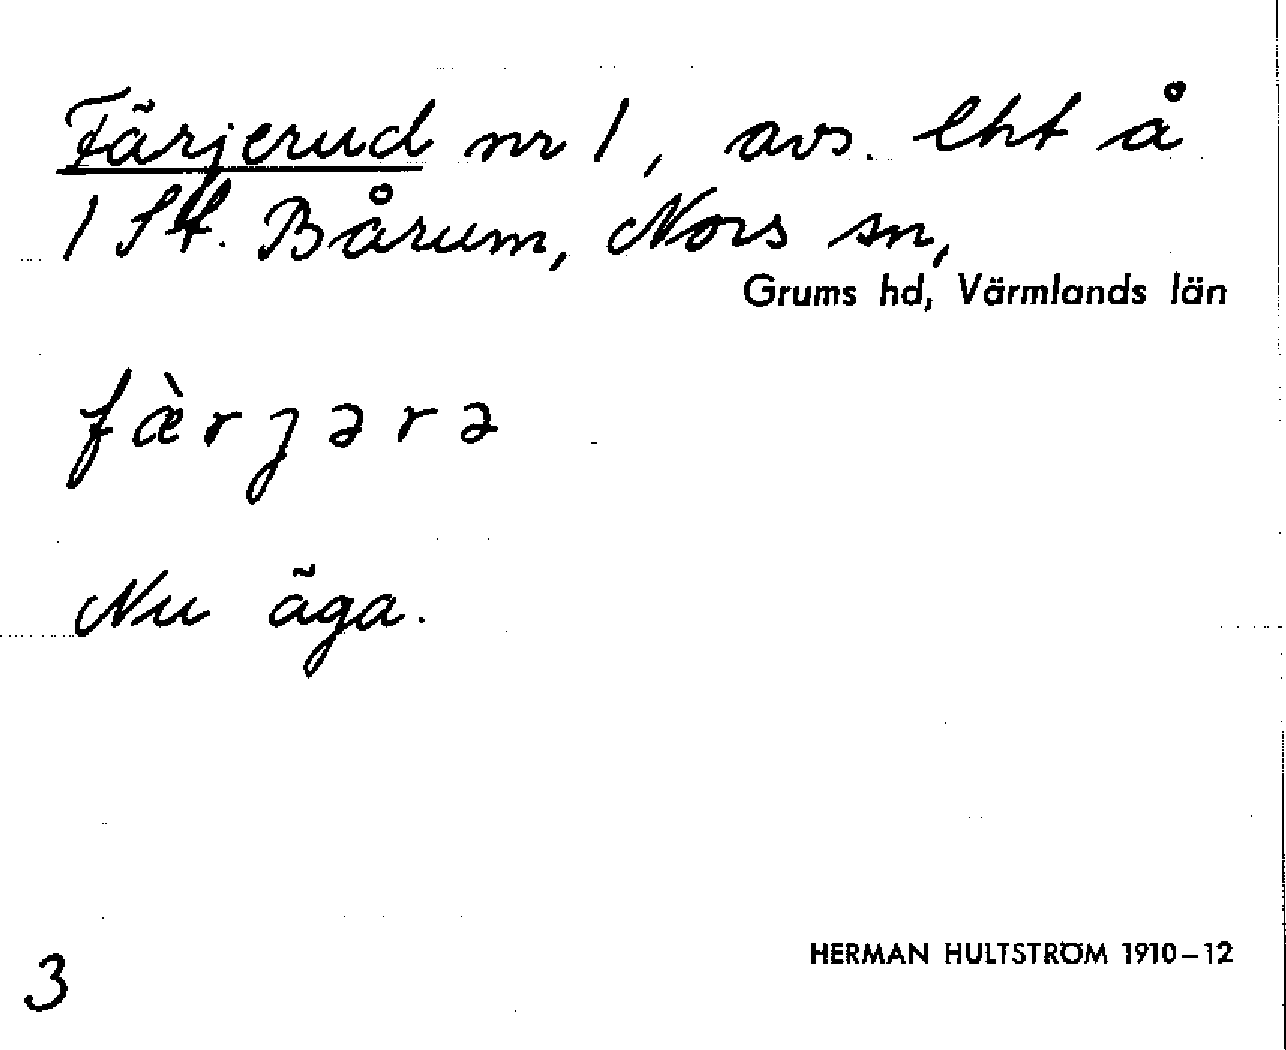 Färjerud nr 1, avs. lht å
1 St. Bårum, Nors sn,
Grums hd, Värmlands län
fæ̀rjərə
Nu äga.
HERMAN HULTSTRÖM 1910–12
3